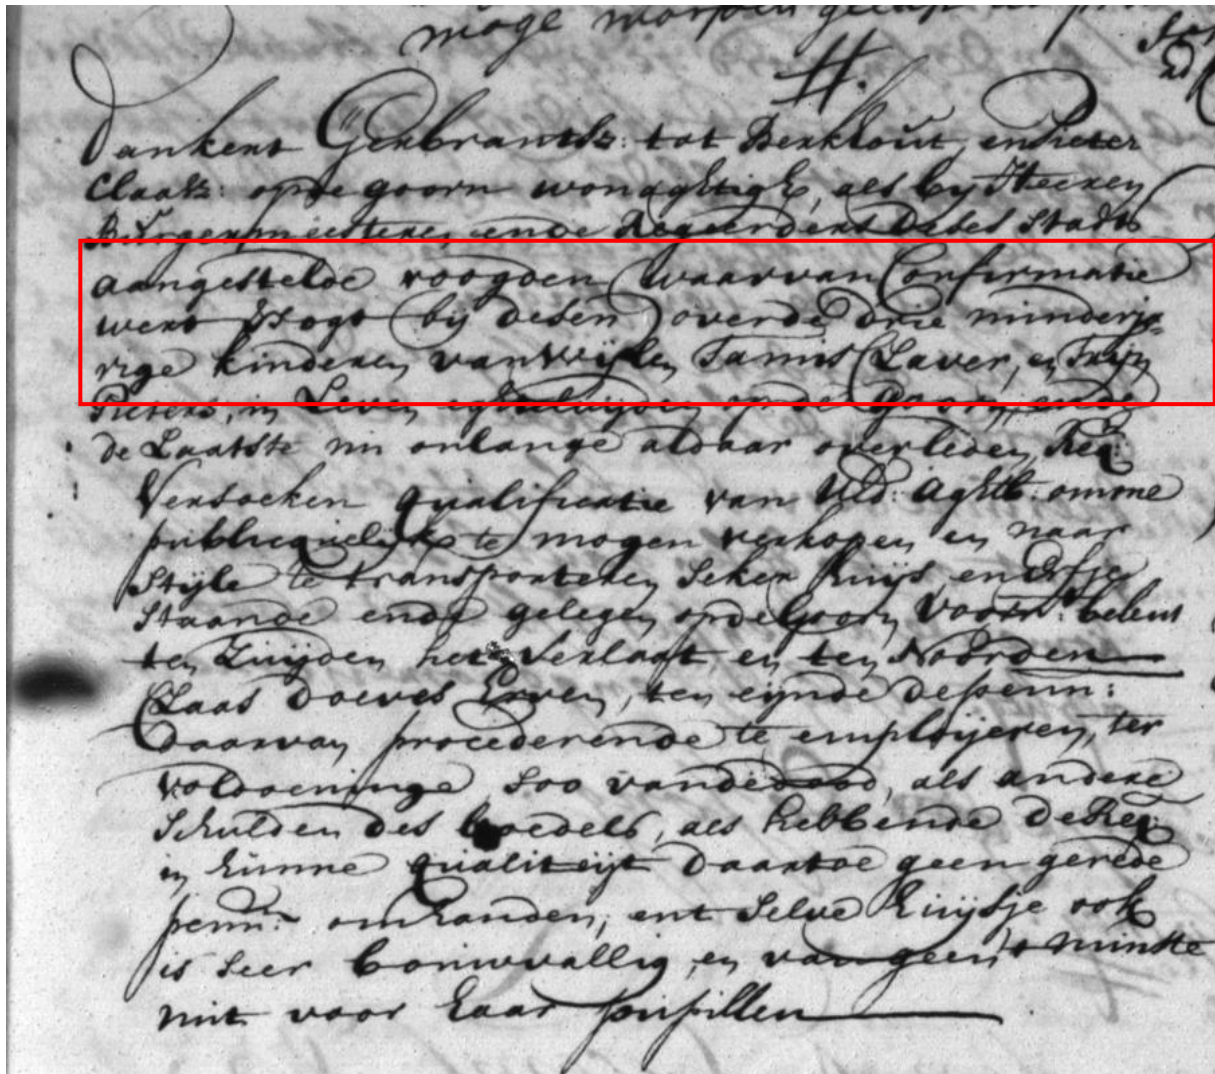 moge
#.
Dankert Gerbrantsz: tot Berkhout, en Pieter
Claasz: opde goorn woonagtigh, als by Heeren
Burgermeesteren ende Regeerders deses Stadts
aangestelde voogden waarvan Confirmatie
wert versogt bij desen over de drie minderja-
rige kinderen van wijlen Tamis Laver, en Trijn
Pieters, in Leven egteluijden op de Goorn, ende
de Laatste nu onlangs aldaar overleden, Req:
Versoeken qualificatie van UEd: Agtb: omme
publicquelijk te mogen verkopen en naar
Stijle te transporteren seker Huijs en Erfje
staande ende gelegen op de Goorn Voorn: belent
ten Zuijden het Verlaat en ten Noorden
Claas Doeves Erven, ten eijnde de penn:
daarvan procederende te employeren, ter
voldoeninge soo van de dood, als andere
schulden des boedels, als hebbende de Req:
in hunne qualiteijt daartoe geen gerede
penn: omhanden, ent selve huijsje ook
is seer bouwvallig, en van geen 't minste
nut voor haar pupillen